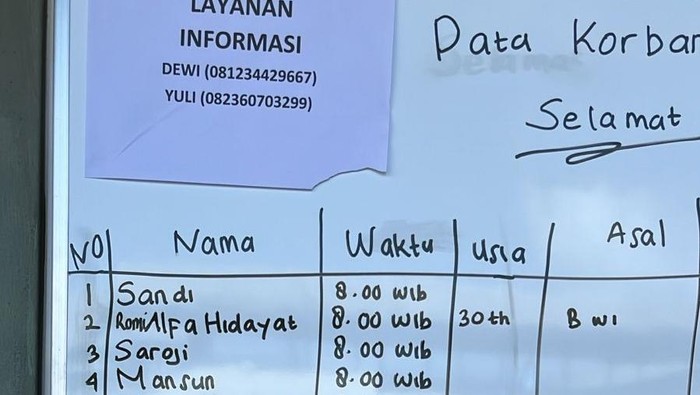 LAYANAN
INFORMASI
DEWI (081234429667)
YULI (082360703299)
Data Korban
Selamat
NO Nama Waktu Usia Asal
1 Sandi 8.00 WIb
2 Romi Alfa Hidayat 8.00 WIb 30 th BWI
3 Saroji 8.00 WIb
4 Mansun 8.00 WIb